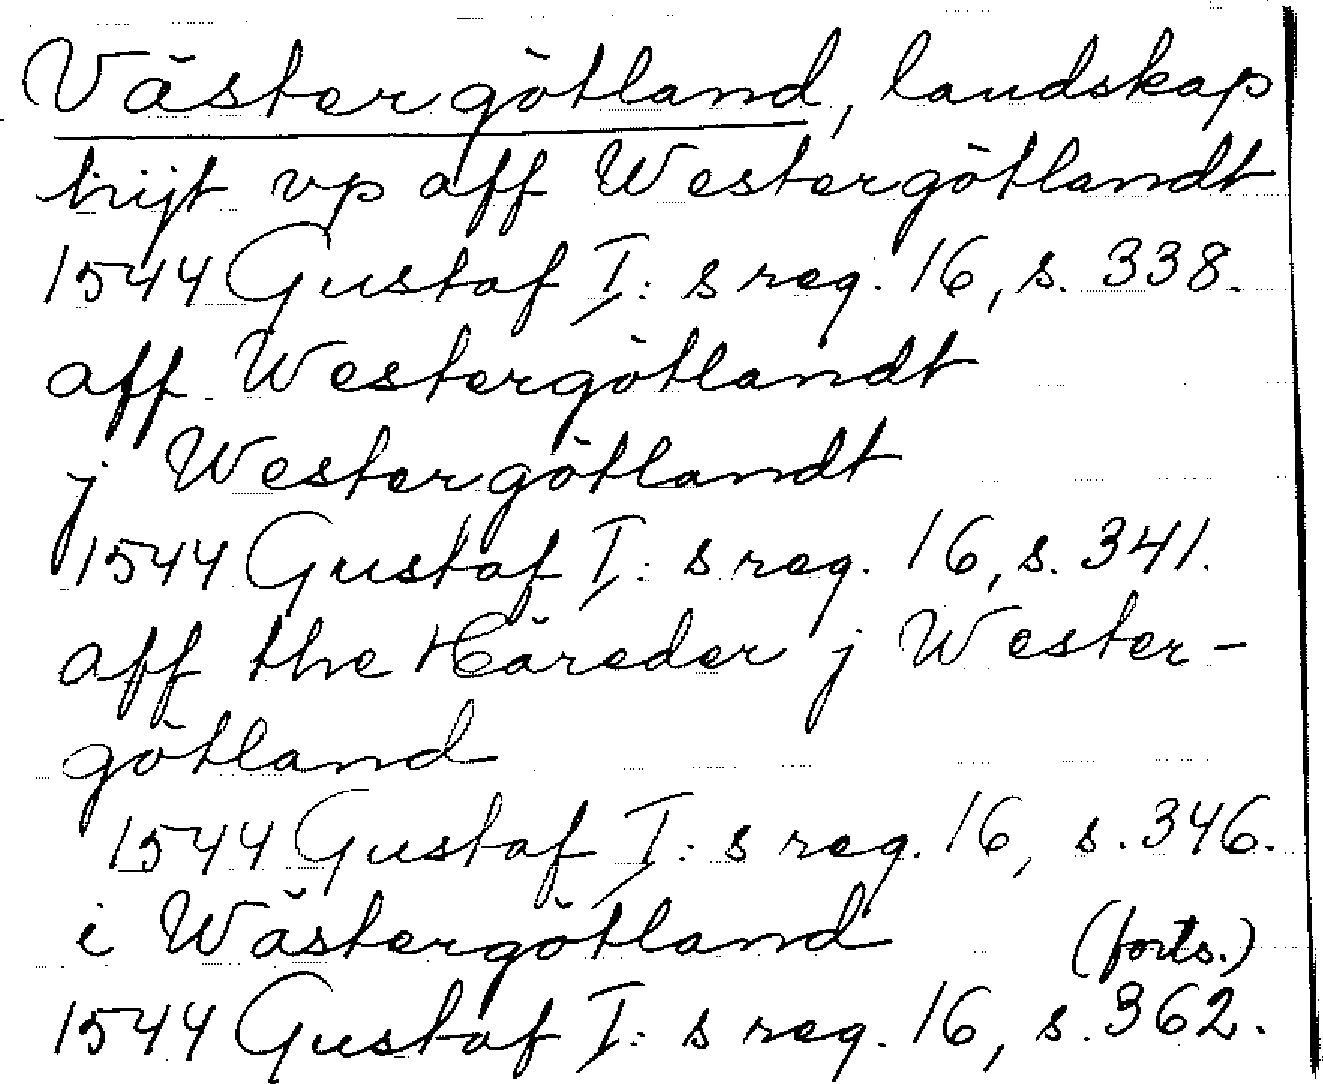 Västergötland, landskap
hijt vp aff Westergötlandt
1544 Gustaf I: s reg. 16, s. 338.
aff Westergötlandt
j Westergötlandt
1544 Gustaf I: s reg. 16, s. 341.
aff the Häreder j Wester-
götland
1544 Gustaf I: s reg. 16, s. 346.
i Wästergötland (forts.)
1544 Gustaf I: s reg. 16, s. 362.